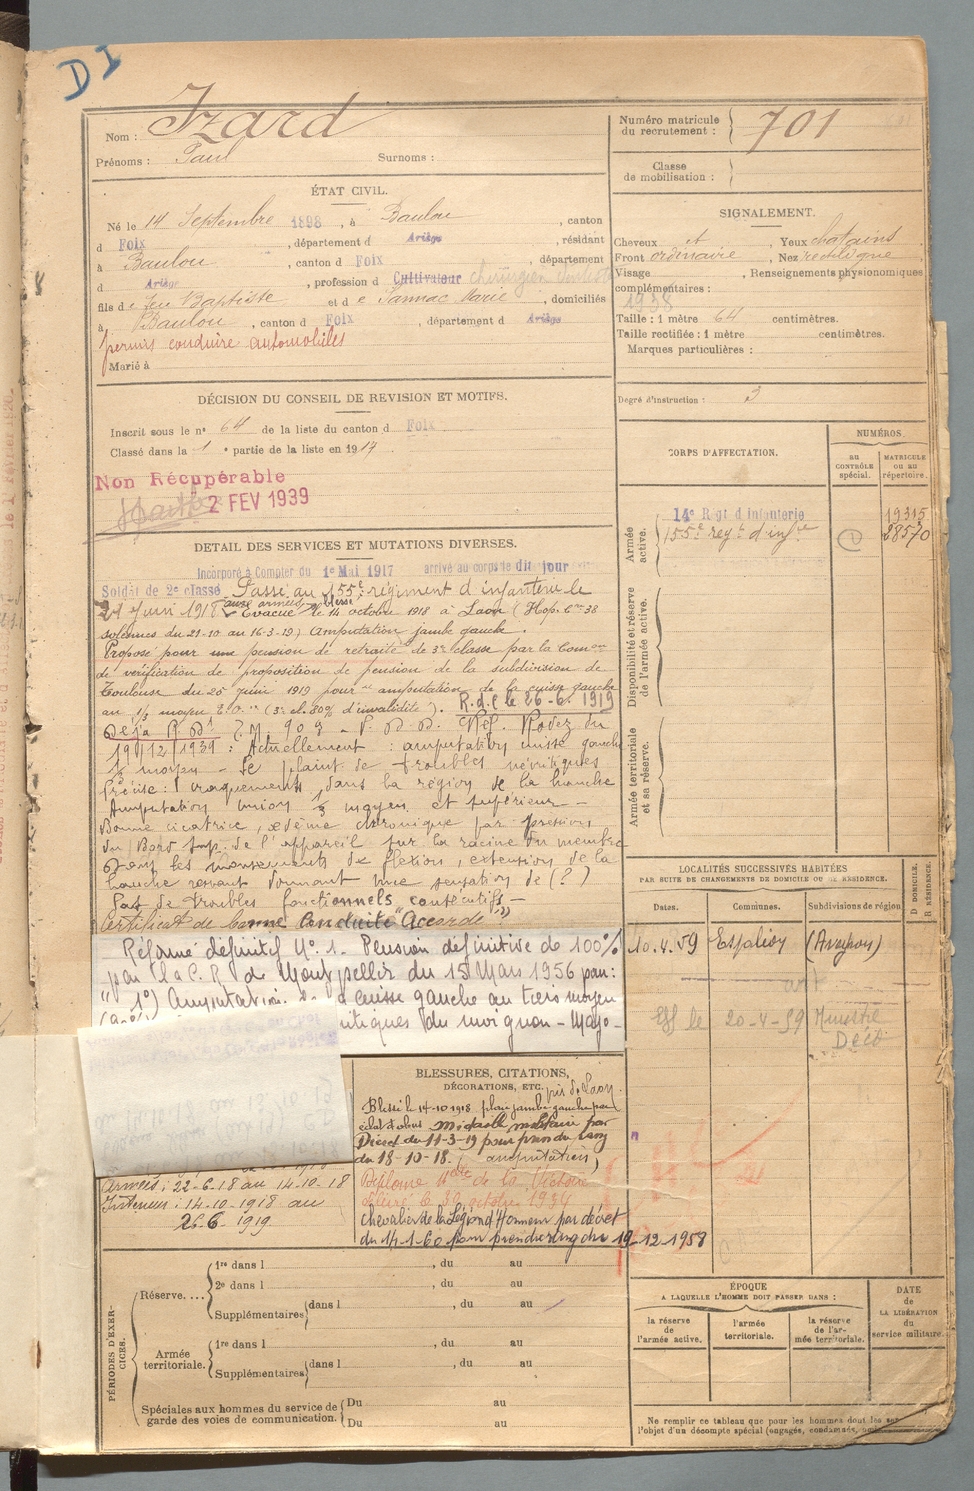 D I
Nom : Izard
Prénoms : Paul Surnoms :
Numéro matricule du recrutement : 701
Classe de mobilisation :
ÉTAT CIVIL.
Né le 14 Septembre 1898, à Baulou, canton
d Foix, département d Ariège, résidant
à Baulou, canton d Foix, département
d Ariège, profession d Cultivateur chirurgien
fils de feu Baptiste et de Jannac Marie, domiciliés
à Baulou, canton d Foix, département d Ariège
permis conduire automobiles
Marié à
SIGNALEMENT.
Cheveux ch, Yeux chatains
Front ordinaire, Nez rectiligne
Visage, Renseignements physionomiques
complémentaires :
1938
Taille : 1 mètre 64 centimètres.
Taille rectifiée : 1 mètre centimètres.
Marques particulières :
Degré d'instruction : 3
DÉCISION DU CONSEIL DE REVISION ET MOTIFS.
Inscrit sous le n° 64 de la liste du canton d Foix
Classé dans la 1e partie de la liste en 1917.
Non Récupérable
2 FEV 1939
DETAIL DES SERVICES ET MUTATIONS DIVERSES.
Incorporé à Compter du 1e Mai 1917 arrivé au corps le dit jour
Soldat de 2e classe Passé au 155e régiment d'infanterie le
21 Juin 1918 aux armées Evacué blessé le 14 octobre 1918 à Laon (Hop. Cre 38
solesmes du 21-10 au 16-3-19) Amputation jambe gauche.
Proposé pour une pension de retraite de 3e classe par la Comon
de vérification de proposition de pension de la subdivision de
Toulouse du 25 juin 1919 pour "amputation de la cuisse gauche
au 1/3 moyen (3e cl. 80% d'invalidité). R.d.C le 26-6-1919
Déjà R.D1 P.M. 909 - P.D.D. Réf. Rodez du
19/12/1939 : Actuellement : amputation cuisse gauche
1/3 moyen - Se plaint de troubles névritiques
Précise : craquements dans la région de la hanche
Amputation union 1/3 moyen et supérieur -
Bonne cicatrice, œdème chronique par pression
du Bord sup. de l'appareil sur la racine du membre
dans les mouvements de flexion, extension de la
hanche ressaut donnant une sensation de (?)
Pas de troubles fonctionnels consécutifs -
Certificat de bonne Conduite "Accordé"
Réformé définitif N° 1. Pension définitive de 100%
par la C.R. de Montpellier du 15 Mars 1956 pour :
" 1°) Amputation de la cuisse gauche au tiers moyen
névritiques du moignon -
Armées : 22-6-18 au 14-10-18
Intérieur : 14-10-1918 au
26-6-1919
BLESSURES, CITATIONS,
DÉCORATIONS, ETC.
près de Laon.
Blessé le 14-10-1918 plaie jambe gauche par
éclat d'obus Médaille militaire par
Décret du 11-3-19 pour prendre rang
du 18-10-18. (amputation)
Diplome Mdlle de la Victoire
délivré le 30 octobre 1934
Chevalier de la Légion d'Honneur par décret
du 14-1-60 pour prendre rang du 19-12-1958
CORPS D'AFFECTATION.
NUMÉROS
AU CONTRÔLE spécial.
MATRICULE OU AU répertoire.
Armée active.
14e Rgt d infanterie 19315
155e regt d'infie 28570
Disponibilité et réserve de l'armée active.
Armée territoriale et sa réserve.
LOCALITÉS SUCCESSIVES HABITÉES
PAR SUITE DE CHANGEMENTS DE DOMICILE OU DE RÉSIDENCE.
Dates. Communes. Subdivisions de région
D DOMICILE. R RÉSIDENCE.
10.4.59 Espalion (Aveyron)
20-4-59
ÉPOQUE
A LAQUELLE L'HOMME DOIT PASSER DANS :
la réserve de l'armée active.
l'armée territoriale.
la réserve de l'armée territoriale.
DATE de LA LIBÉRATION du service militaire.
PÉRIODES D'EXERCICES.
Réserve.... 1re dans l , du au
2e dans l , du au
Supplémentaires dans l , du au
Armée territoriale. 1re dans l , du au
Supplémentaires dans l , du au
Spéciales aux hommes du service de garde des voies de communication. Du au
Du au
Ne remplir ce tableau que pour les hommes dont les
l'objet d'un décompte spécial (engagés, condamnés,